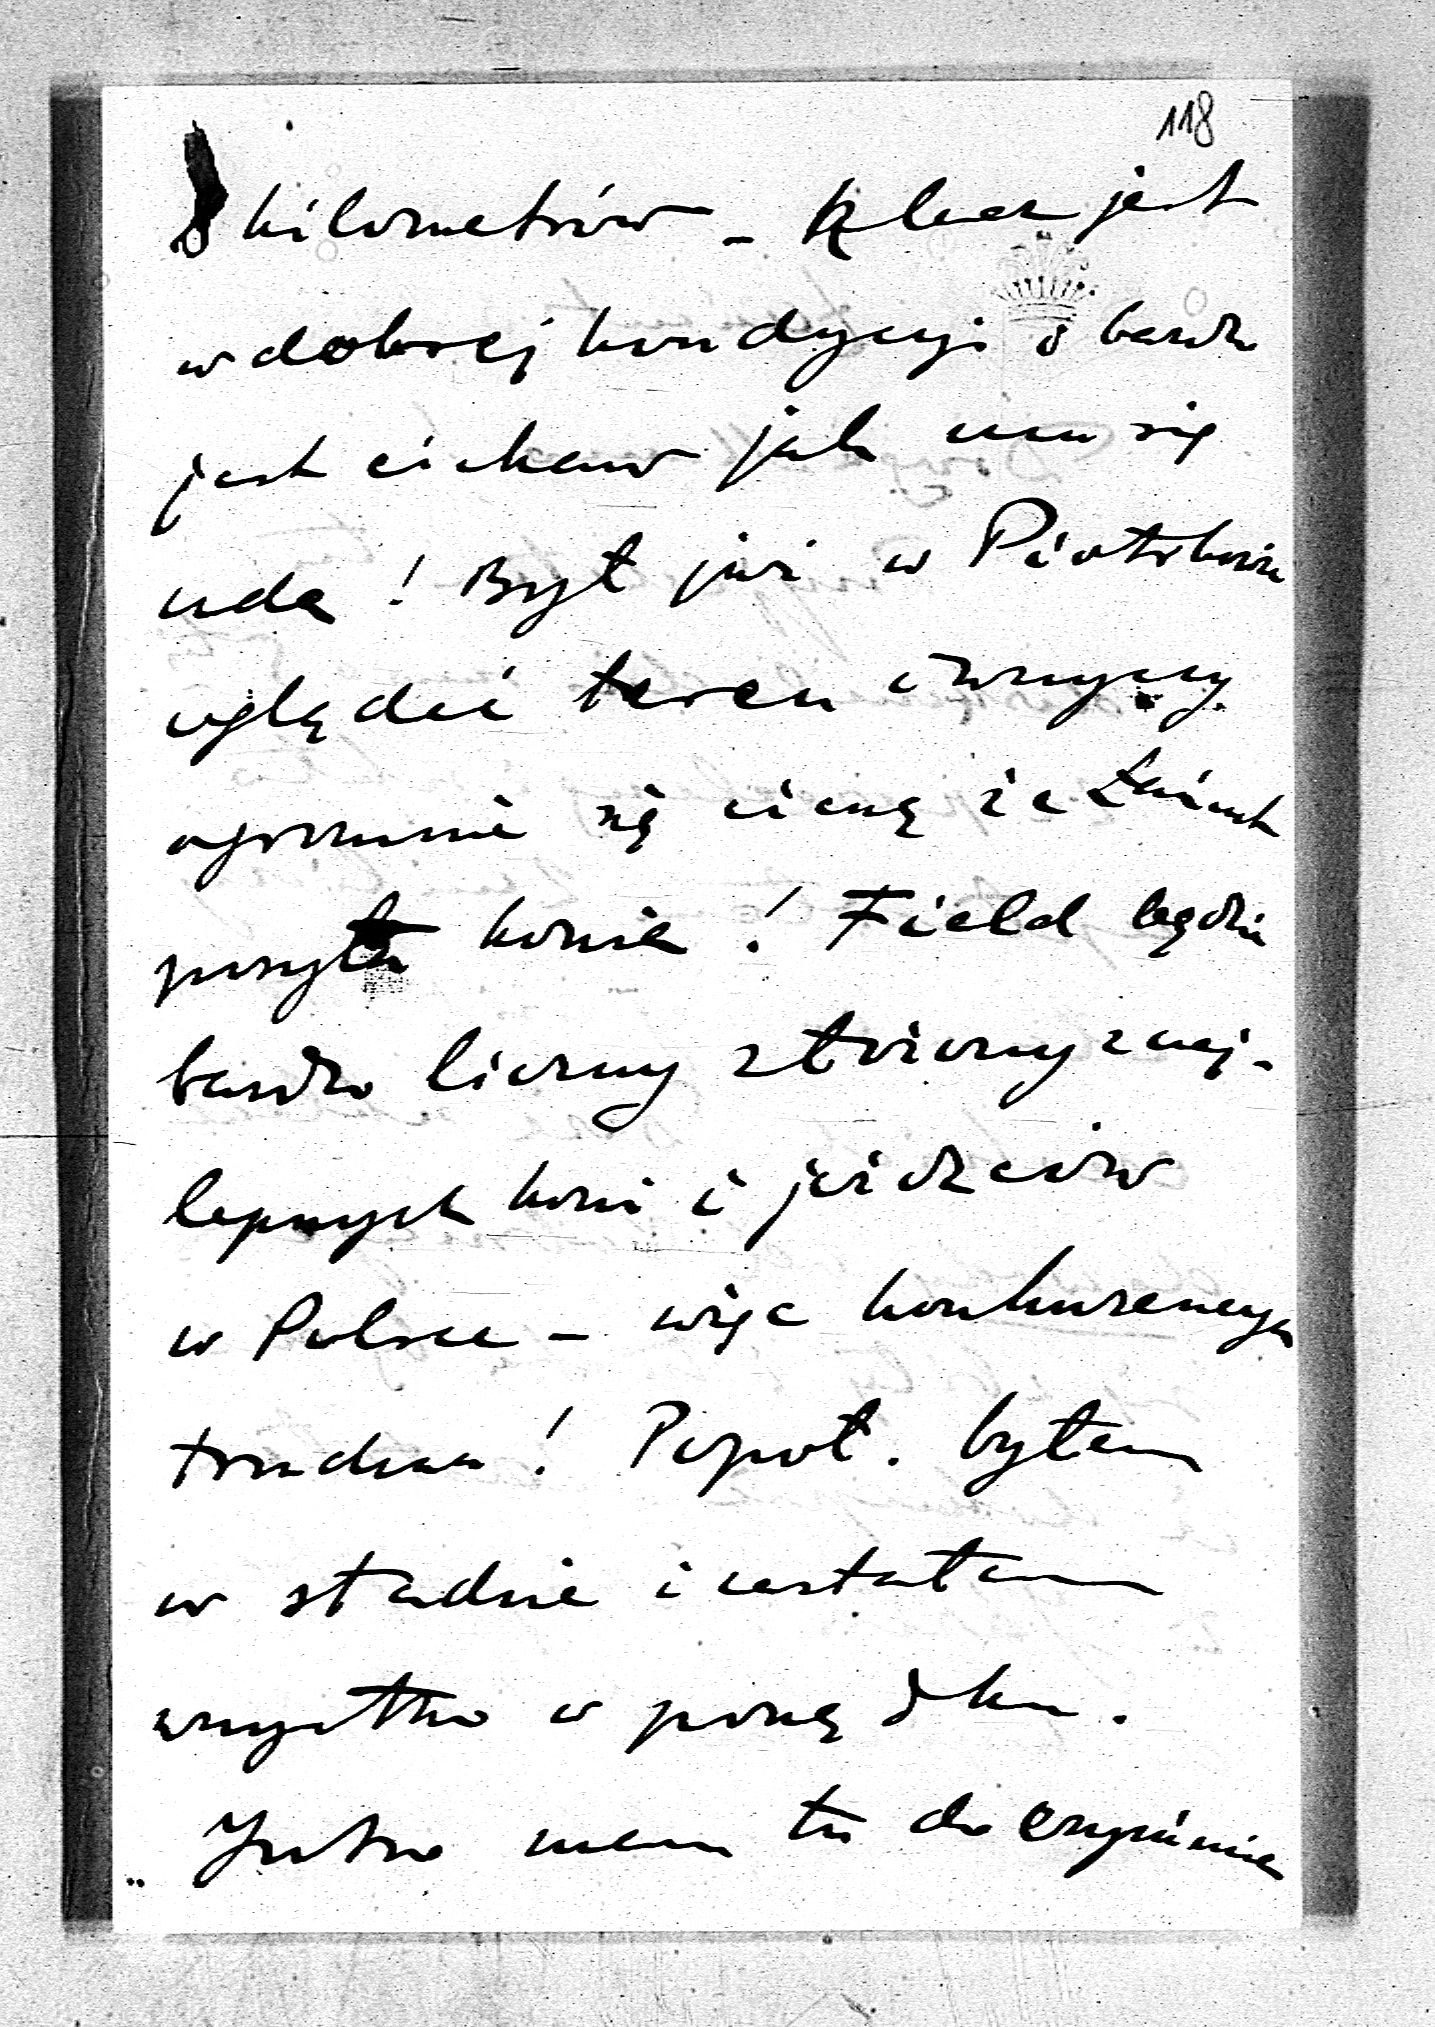 118
8 kilometrów – Klacz jest
w dobrej kondycyi i bardzo
jest ciekaw jak mu się
uda! Był już w Piotrkowie
oglądać teren i wszyscy
ogromnie się cieszą że Łańcut
posyła konia! Field będzie
bardzo liczny złożony z naj-
lepszych koni i jeźdzców
w Polsce – więc konkurencya
trudna! Popoł. byłem
w stadnie i zastałam
wszystko w porządku.
Jutro mam tu do czynienia